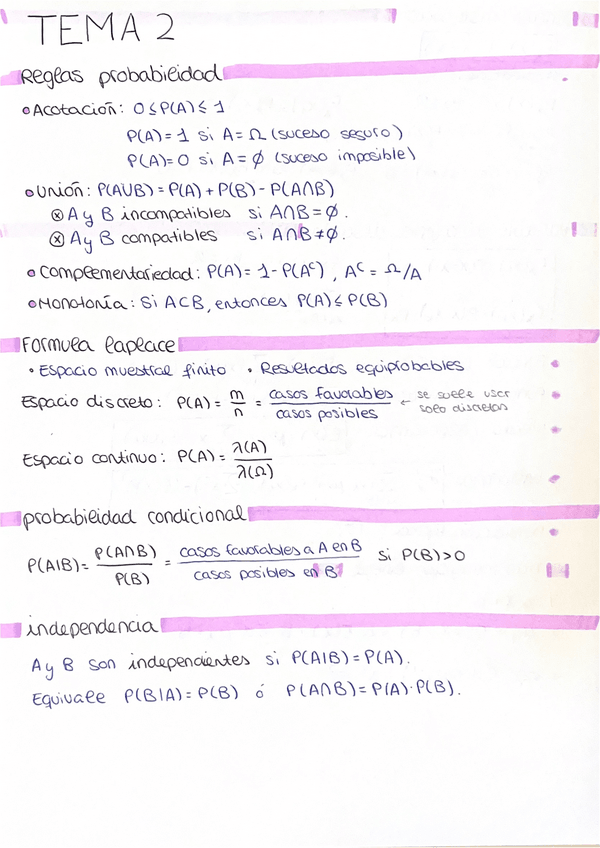 TEMA 2
Reglas probabilidad
• Acotación: 0 ≤ P(A) ≤ 1
P(A) = 1 si A = Ω (suceso seguro)
P(A) = 0 si A = ∅ (suceso imposible)
• Unión: P(A∪B) = P(A) + P(B) - P(A∩B)
⊗ A y B incompatibles si A∩B = ∅.
⊗ A y B compatibles si A∩B ≠ ∅.
• Complementariedad: P(A) = 1 - P(Aᶜ), Aᶜ = Ω/A
• Monotonía: Si A⊂B, entonces P(A) ≤ P(B)
Formula laplace
• Espacio muestral finito • Resultados equiprobables
Espacio discreto: P(A) = m/n = casos favorables/casos posibles ← se suele usar solo discretos
Espacio continuo: P(A) = λ(A)/λ(Ω)
probabilidad condicional
P(A|B) = P(A∩B)/P(B) = casos favorables a A en B/casos posibles en B si P(B) > 0
independencia
A y B son independientes si P(A|B) = P(A).
Equivale P(B|A) = P(B) ó P(A∩B) = P(A)·P(B).